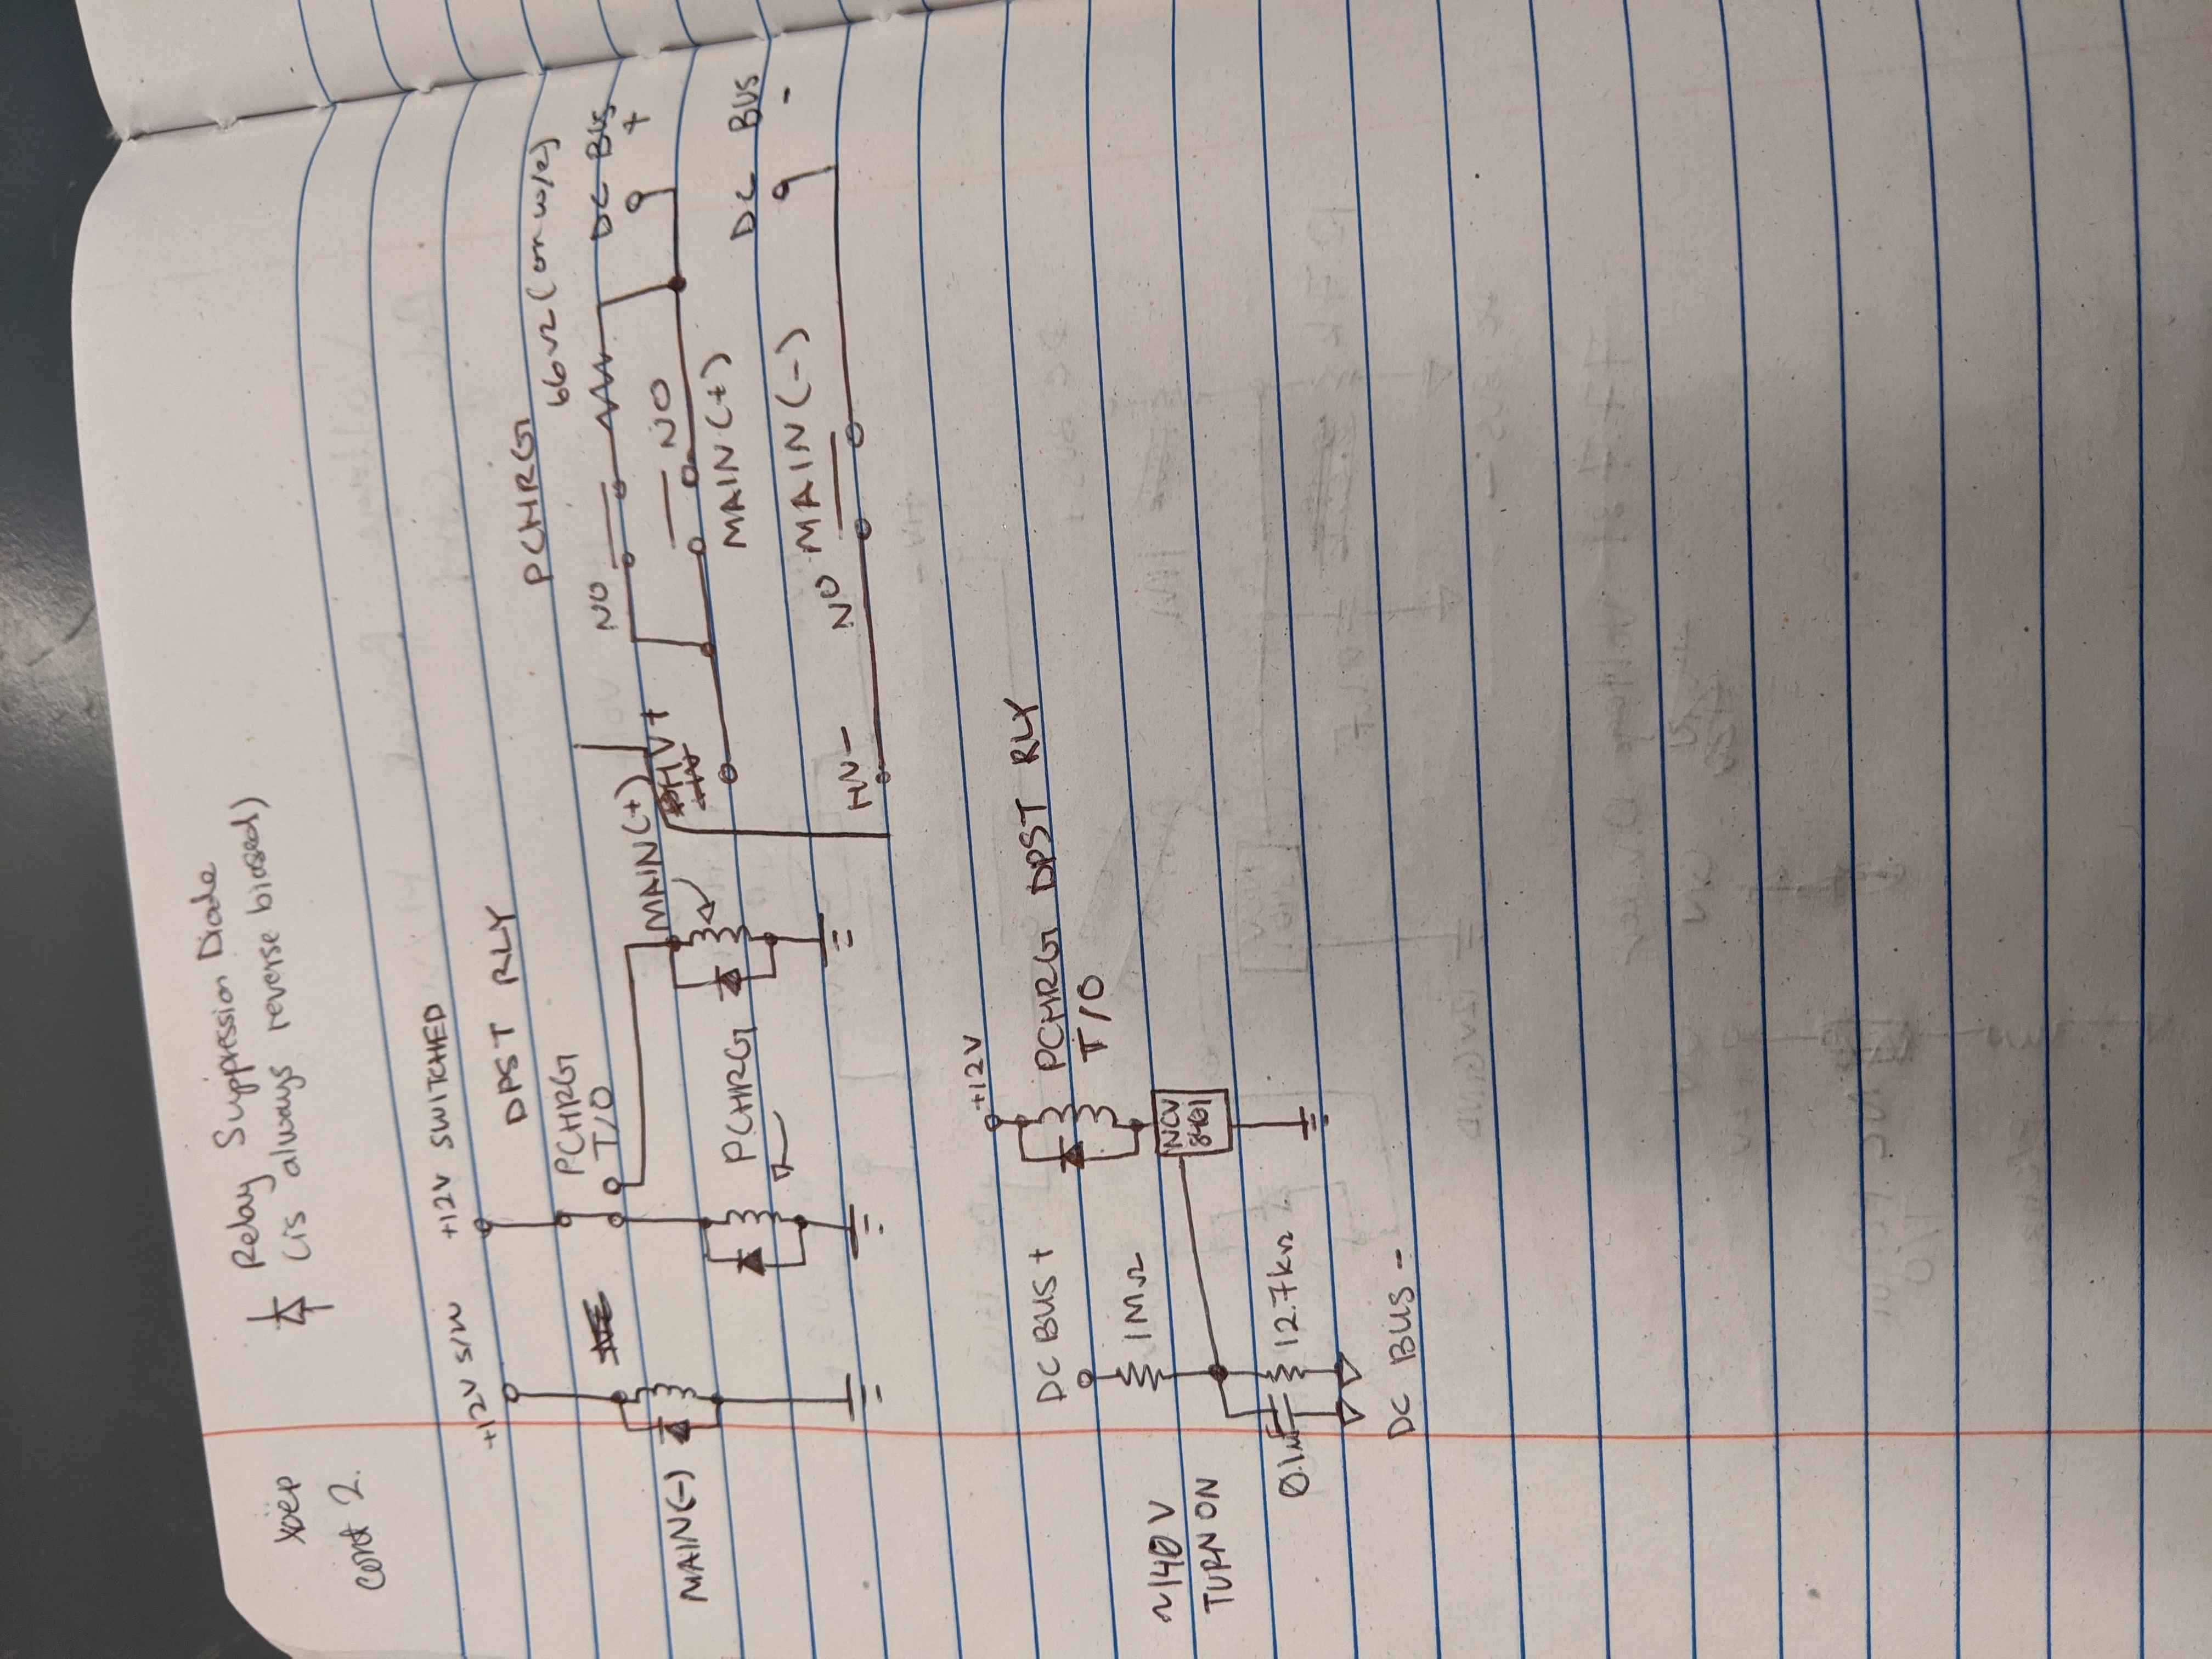 Relay Suppression Diode
(is always reverse biased)
cont 2.
+12V S/W
+12V SWITCHED
DPST RLY
PCHRG
T/O
MAIN(-)
PCHRG
MAIN(+)
HV+
HV-
PCHRG
66Ω
NO
NO
MAIN(+)
NO
MAIN(-)
DC BUS
+
DC BUS
-
~140V
TURN ON
DC BUS+
1MΩ
0.1µF
12.7kΩ
DC BUS-
+12V
PCHRG DPST RLY
T/O
NCV
8401